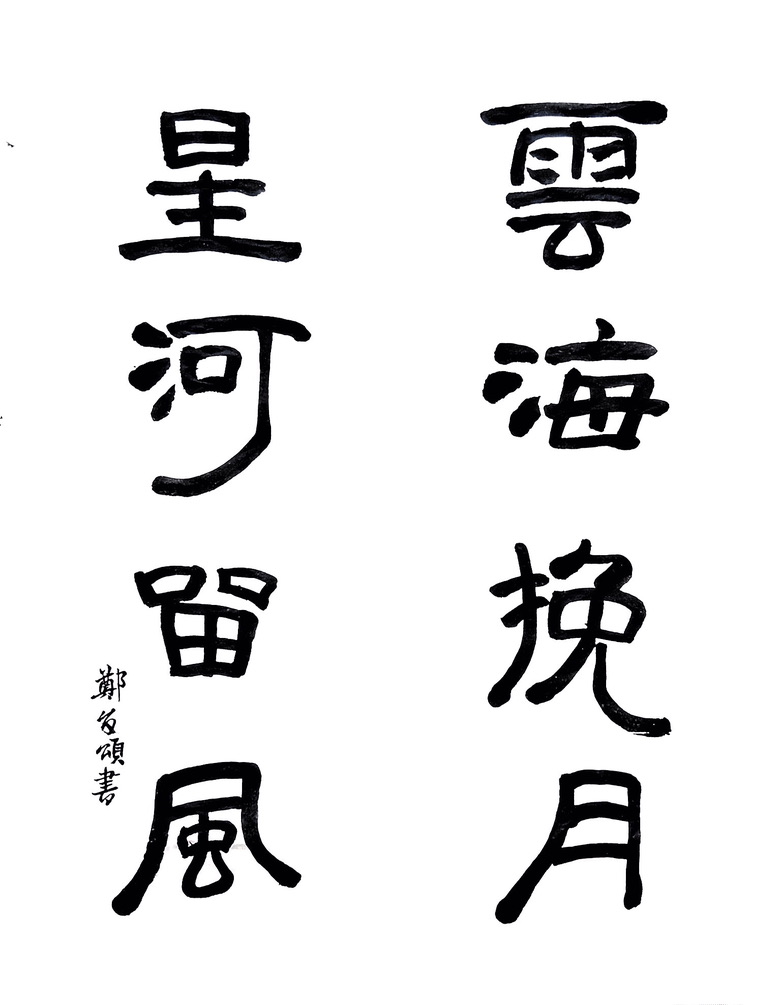 雲海挽月
星河留風
鄭百頌書